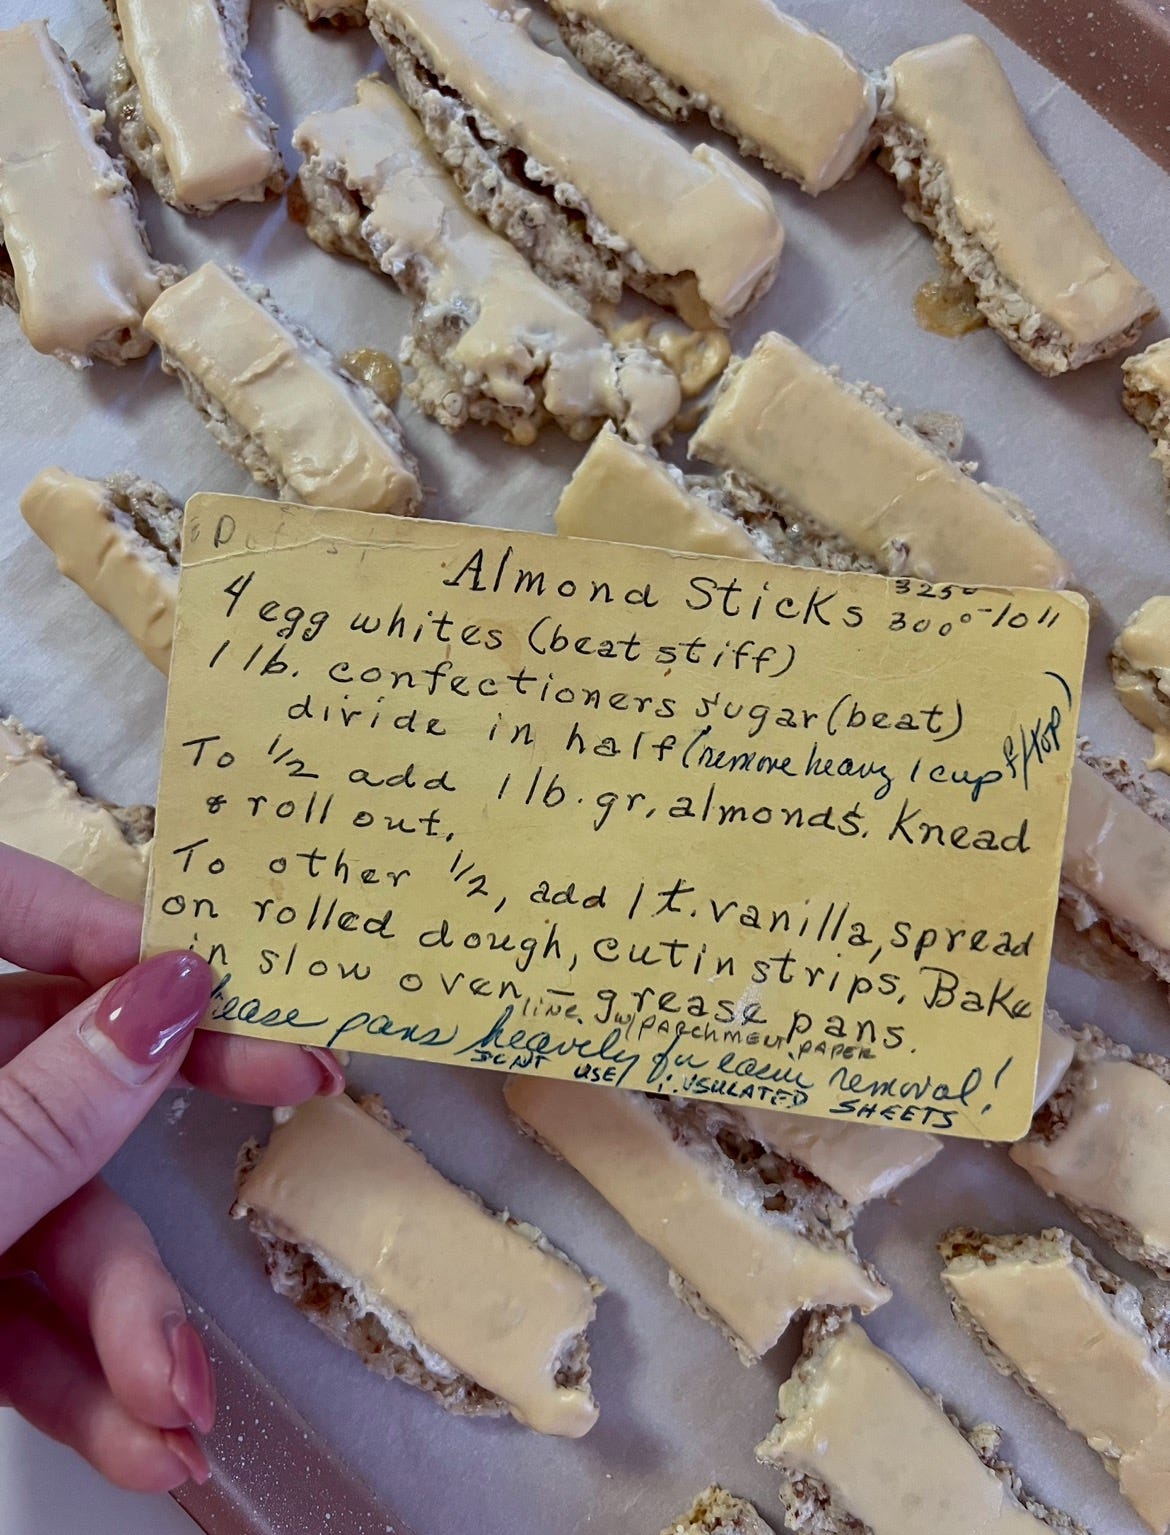 Almond Sticks 325°
300°-10"
4 egg whites (beat stiff)
1 lb. confectioners sugar (beat)
divide in half (remove heavy 1 cup f/top)
To 1/2 add 1 lb. gr. almonds. Knead
& roll out.
To other 1/2, add 1 t. vanilla, spread
on rolled dough, cut in strips. Bake
in slow oven - grease pans.
line w/ PARCHMENT PAPER
pans heavely for easier removal!
USE INSULATED SHEETS